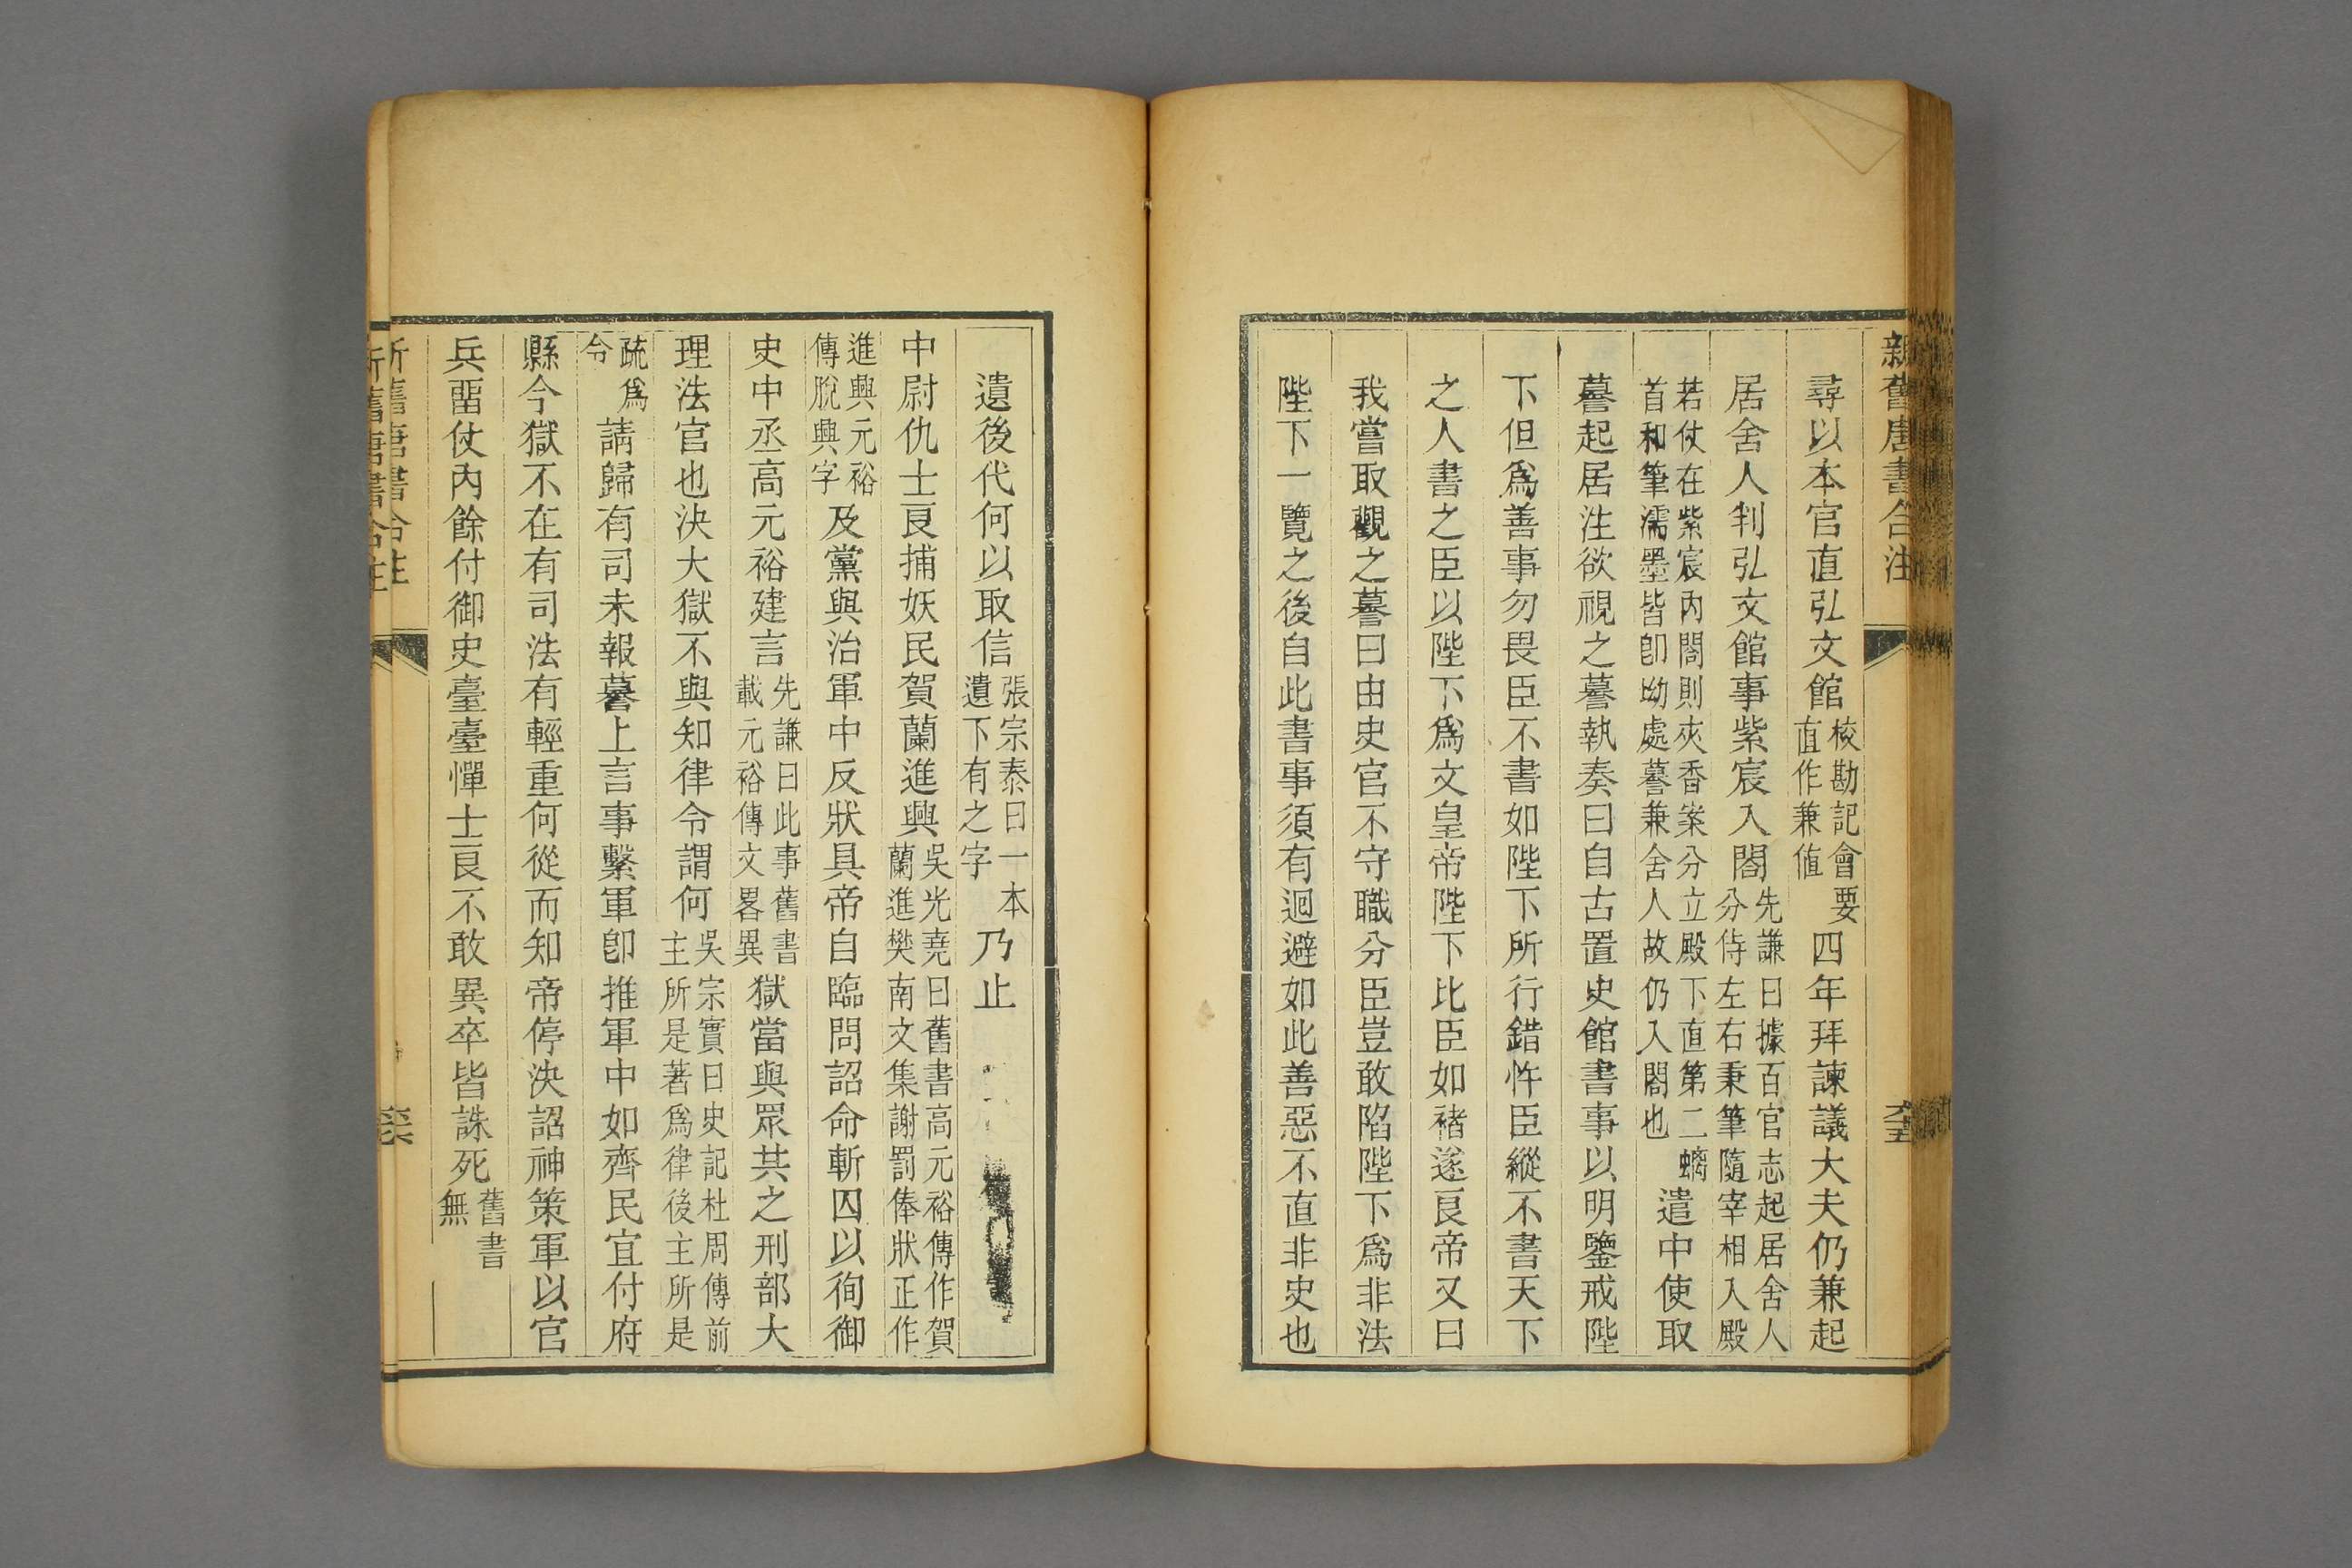 新舊唐書合注
尋以本官直弘文館校勘記會要直作兼値四年拜諫議大夫仍兼起
居舍人判弘文館事紫宸入閤先謙曰據百官志起居舍人分侍左右秉筆隨宰相入殿
若仗在紫宸內閤則夾香案分立殿下直第二螭首和筆濡墨皆卽坳處謩兼舍人故仍入閤也遣中使取
謩起居注欲視之謩執奏曰自古置史館書事以明鑒戒陛
下但爲善事勿畏臣不書如陛下所行錯忤臣縱不書天下
之人書之臣以陛下爲文皇帝陛下比臣如褚遂良帝又曰
我嘗取觀之謩曰由史官不守職分臣豈敢陷陛下爲非法
陛下一覽之後自此書事須有迴避如此善惡不直非史也
遺後代何以取信張宗泰曰一本遺下有之字乃止
中尉仇士良捕妖民賀蘭進興吳光堯曰舊書高元裕傳作賀蘭進樊南文集謝罰俸狀正作
進興元裕傳脫興字及黨與治軍中反狀具帝自臨問詔命斬囚以徇御
史中丞高元裕建言先謙曰此事舊書載元裕傳文畧異獄當與眾共之刑部大
理法官也決大獄不與知律令謂何吳宗實曰史記杜周傳前主所是著爲律後主所是
疏爲令請歸有司未報謩上言事繫軍卽推軍中如齊民宜付府
縣今獄不在有司法有輕重何從而知帝停決詔神策軍以官
兵畱仗內餘付御史臺臺憚士良不敢異卒皆誅死舊書無